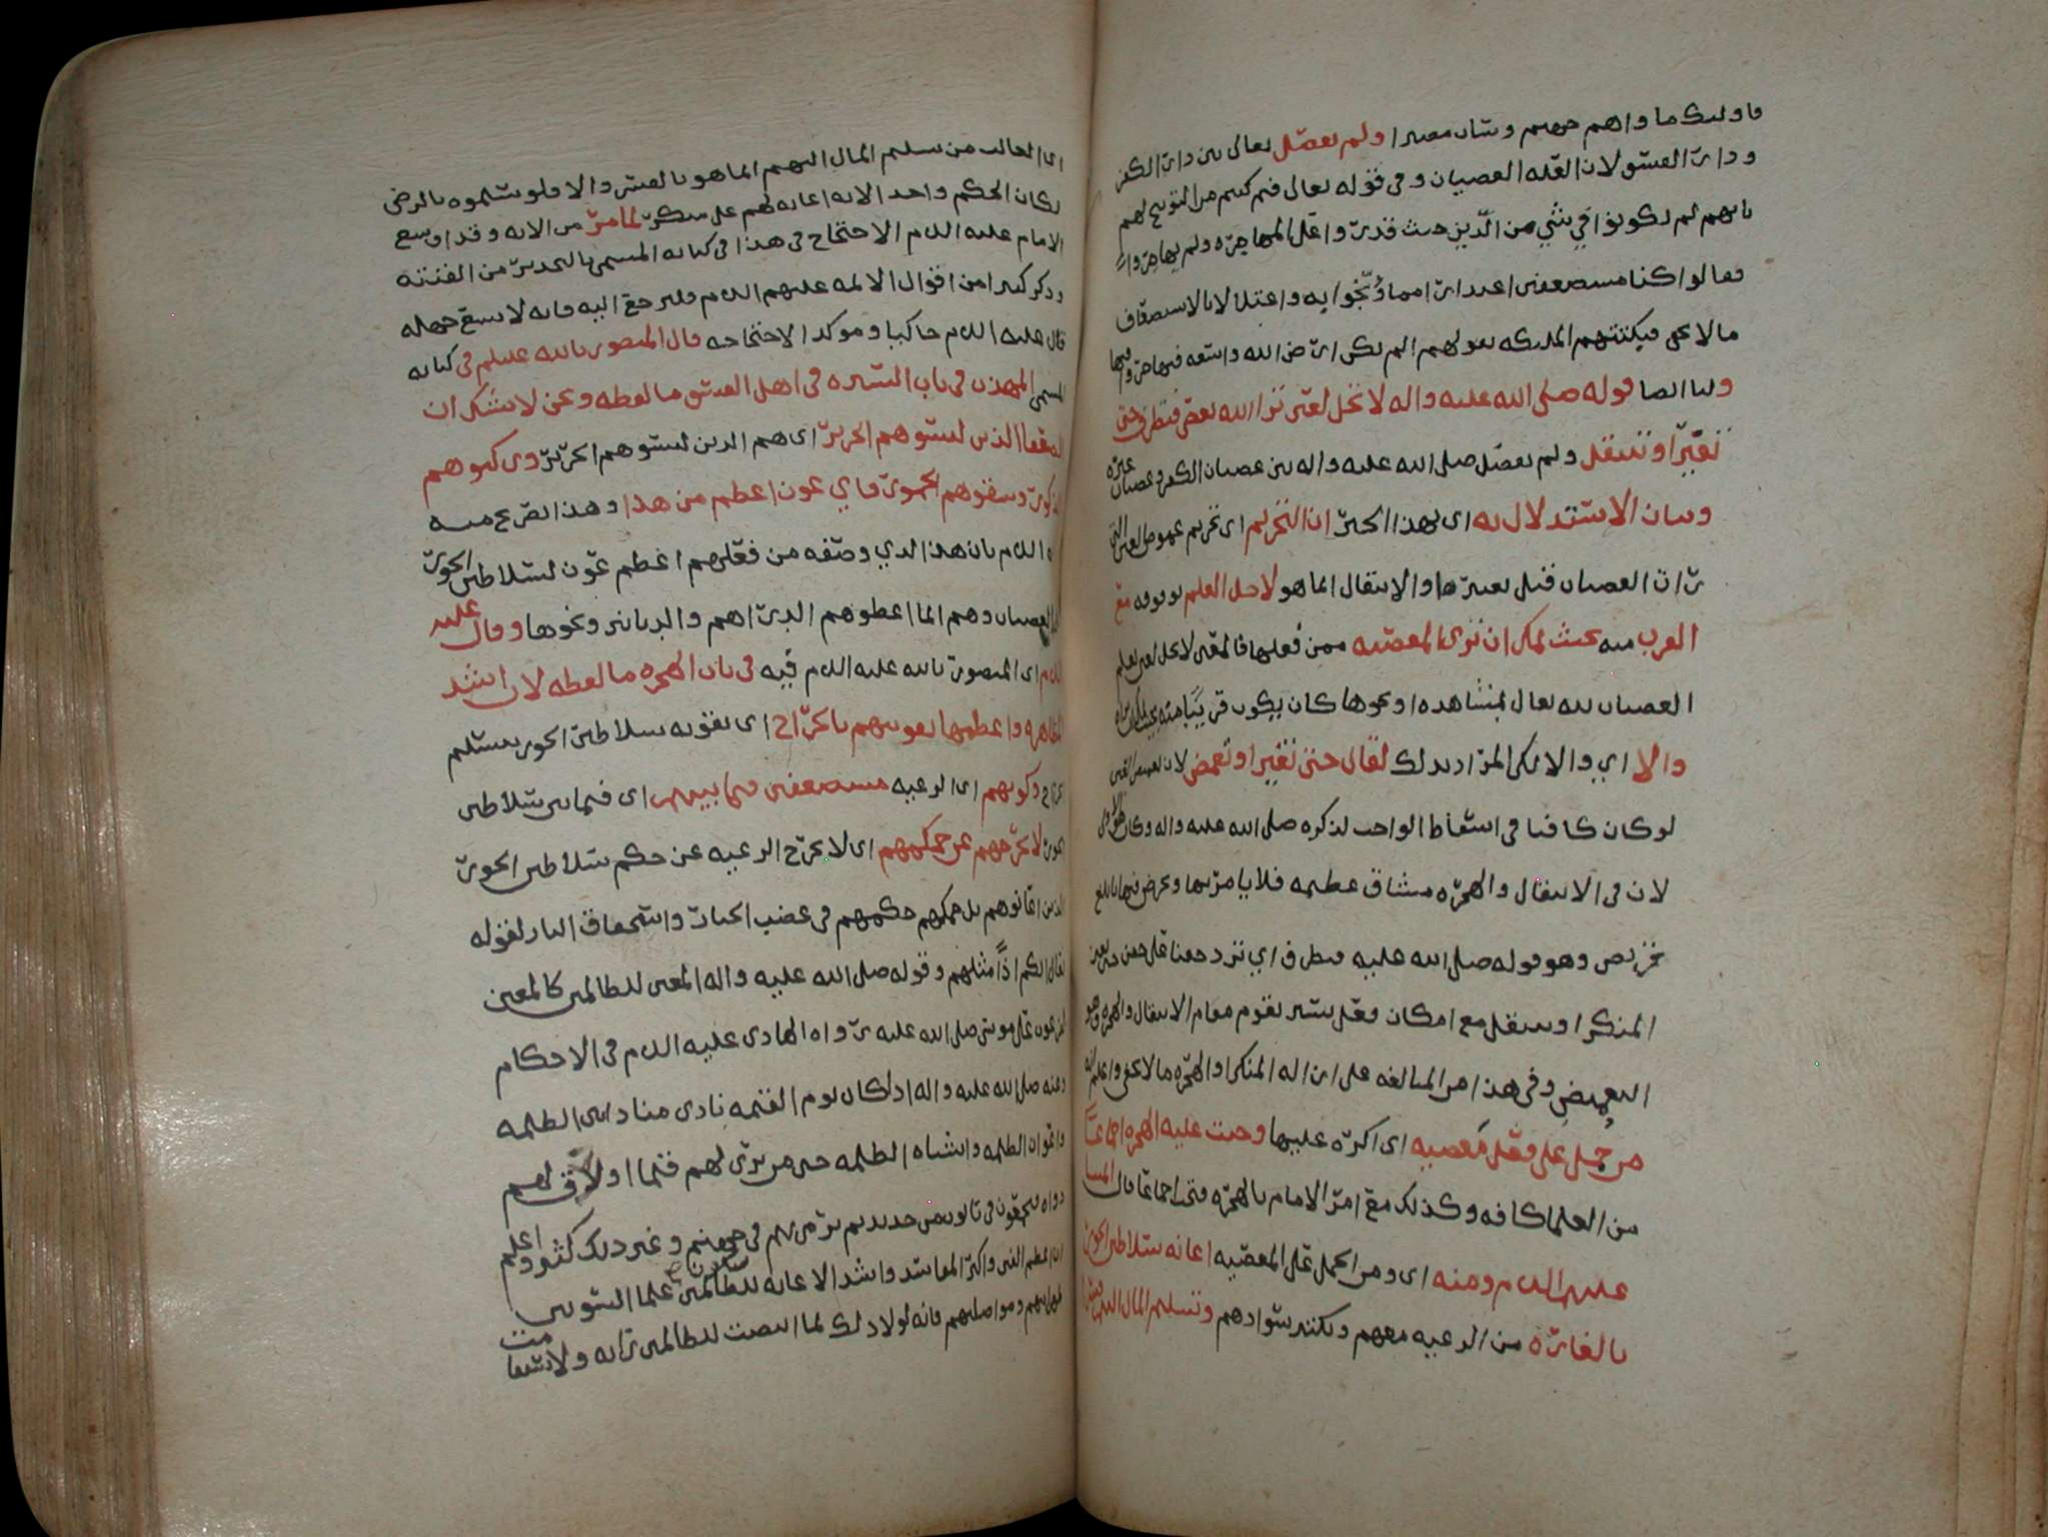 فاولىك ماواهم جهىم وساٮ مصىرا ولم ىفصّل ىعالى ىىن دار الكفر
ودار الفسق لان العله العصىان وفى قوله ىعالى فىم كىىم من التوبىح لهم
ىانهم لم ىكونوا في شي من الدين حىث قدروا على المهاجره ولم يهاجروا
فقالوا كنا مسىصعفىن اعىدارا مما وبّخوا به واعىلالا بالاسىضعاف
ما لا ىحفى فبكّتتهم الملىكه ىقولهم الم ىكن ارض الله واسعه فىهاجروا فىها
ولىا اىضا قوله صلى الله علىه واله لا تحل لعين ترا الله ىعصى فتطرف حتى
تغيّر او تنتقل ولم ىفصّل صلى الله علىه واله ىىن عصىان الكفر وعصىان غيره
وىىان الاستدلال به اى بهذا الخبر ان التحريم اى تحريم غموض العين التي
رات العصىان قىل ىغىىرها والانتقال انما هو لاجل العلم ىوقوعه مع
القرب منه ىحىث ىمكن ان ترى المعصىه ممن فعلها فالمعنى لا ىحل لعىن ىعلم
العصىان لله ىعالى بمشاهده او نحوها كان يكون قريبا منه
والا اي والا ىكن المراد ىذلك لقال حتى تغيّر او تغمض لان ىغمىض العىن
لو كان كافىا فى اسقاط الواجب لذكره صلى الله علىه واله وكان هو الاولى
لان فى الانىقال والهجره مشاق عظىمه فلا يامر ىها وىحرض فىها بابلغ
تحريص وهو قوله صلى الله عليه فىطرف اي ترد جفنا على جفن حتى ىغىر
المنكر او ىىىقل مع امكان فعل ىسىر ىقوم مقام الانىقال والهجره وهو
التغميض وفى هذا من المىالغه على ازاله المنكر او الهجره ما لا ىحفى واعلم انه
من حُمل على فعل معصيه اى اكره عليها وجىت علىه الهجره اجماعًا
من العلما كافه وكذلك مع امر الامام ىالهجره فىحب اجماعا قال
علىهم السلام ومنه اى ومن الحمل على المعصيه اعانه سلاطىن الجور
بالغاره من الرعيه معهم وىكىىر سوادهم وتسليم المال الىهم
اى الغالب من ىسلىم المال الىهم انما هو ىالقسر والا فلو سلموه ىالرضى
لكان الحكم واحد الا انه اعانه لهم على منكر لما مرّ من الايه وقد اوسع
الامام علىه السلام الاحتجاج فى هذا فى كىاىه المسمى بالتحذير من الفتنه
وذكر كىىرا من اقوال الائمه علىهم السلام فلىرجع اليه فانه لا ىسع جهله
قال علىه السلام حاكيا وموكدا لاحىجاجه قال المنصور ىالله علىلم فى كىاىه
المسمى المهذب فى ىاب السيره فى اهل الفسق ما لفظه ونحن لا نشك ان
الضعفا الذىن لبسوهم الحرير اى هم الدىن لبسوهم الحرير وركبوهم
الذكور وسقوهم الخمور فاي عون اعظم من هذا وهذا تصرىح منه
علىه السلام بان هذا الذي وصفه من فعلهم اعظم عون لسلاطىن الجور
على العصىان وهم انما اعطوهم الدراهم والدنانىر ونحوها وقال علىه
السلام اى المنصور ىالله علىه السلام فيه فى ىاب الهجره ما لفظه لان اشد
المظاهره واعظمها ىقوىىهم بالخراج اى تقوىه سلاطىن الجور ىىسلىم
الخراج وكونهم اى الرعيه مستضعفىن فىما بينهم اى فىما ىىن سلاطىن
الجور لا ىخرجهم عن حكمهم اى لا ىخرج الرعيه عن حكم سلاطىن الجور
الذىن اعانوهم ىل حكمهم حكمهم فى غضب الجىار واستحقاق النار لقوله
تعالى انكم اذًا مثلهم وقوله صلى الله عليه واله المعىن للظالمىن كالمعىن
لفرعون على موسى صلى الله عليه رواه الهادى عليه السلام فى الاحكام
وعنه صلى الله علىه واله اذا كان ىوم القىمه نادى مناد اىن الظلمه
واعوان الظلمه واشىاه الظلمه حىى من ىرى لهم قلما او لاق لهم
دواه فىجعلون فى تابوت من حديد ىم ىرمى بهم فى جهنم وغىر ذلك كثير واعلم
ان اعظم الفتن واكبر المفاسد واشد الاعانه للظالمىن سكون علما السو ىىن
ظهرانيهم ومواصلىهم فانه لولا ذلك لما انىصىت للظالمىن رايه ولا استقامت